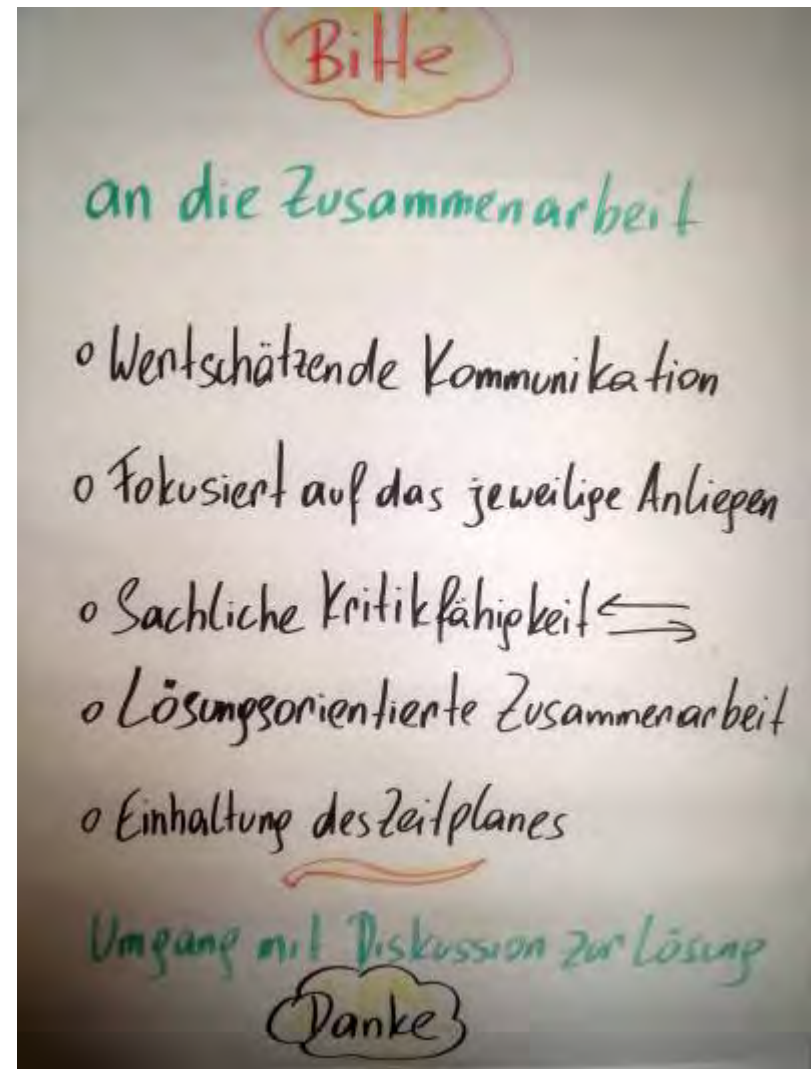 Bitte
an die Zusammenarbeit
o Wertschätzende Kommunikation
o Fokusiert auf das jeweilige Anliegen
o Sachliche Kritikfähigkeit
o Lösungsorientierte Zusammenarbeit
o Einhaltung des Zeitplanes
Umgang mit Diskussion zur Lösung
Danke